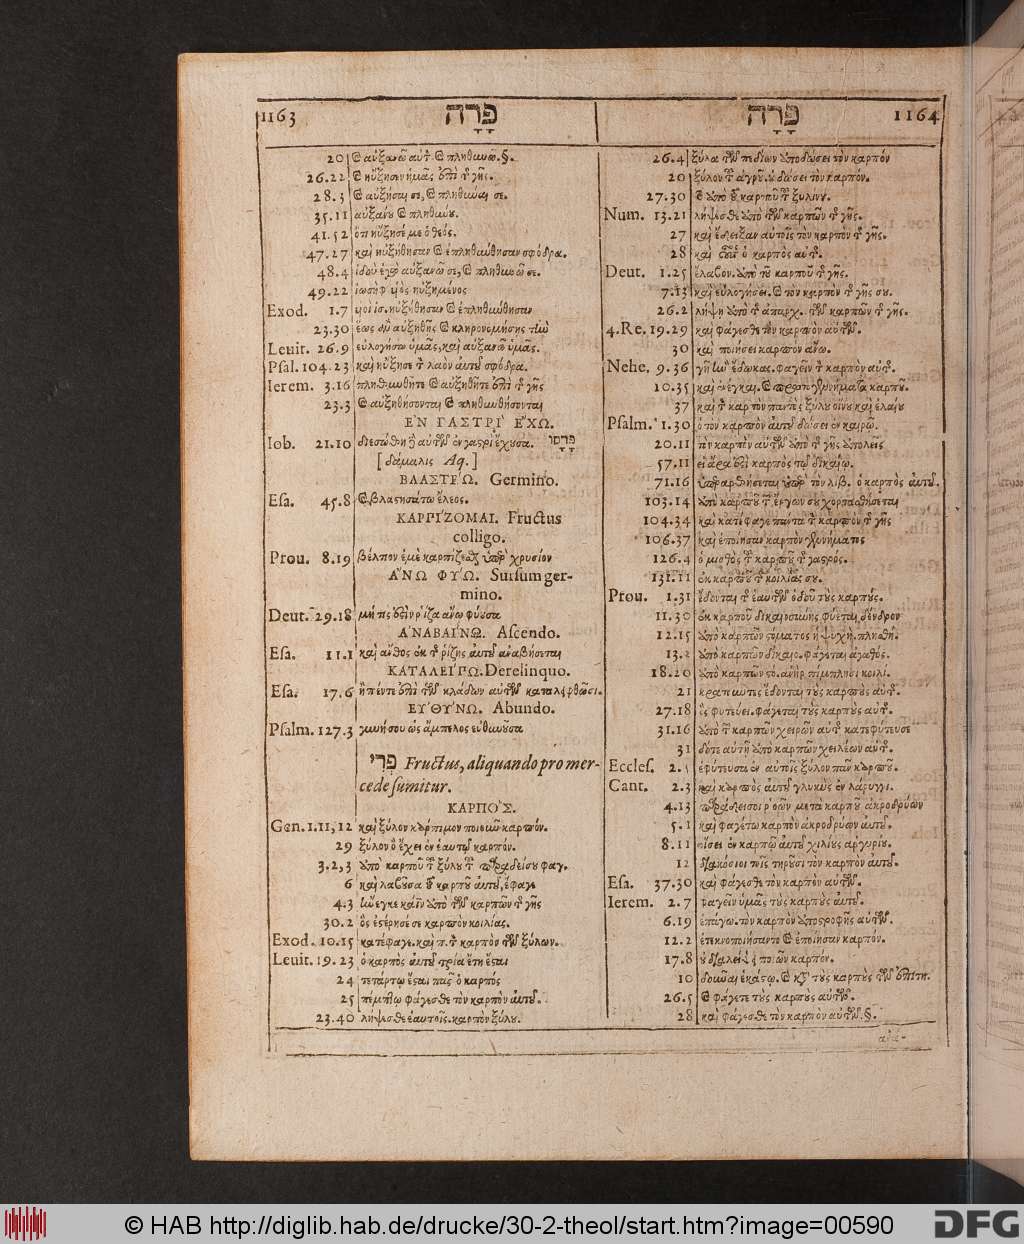 1163 פָּרָה
20 & αὐξανῶ αὐτ. & πληθυνῶ. §.
26.22 & ηὔξησεν ἡμᾶς ἐπὶ τ γῆς.
28.3 & αὐξήσαι σε, & πληθύναι σε.
35.11 αὐξάνου & πληθύνου.
41.52 ὅτι ηὔξησέ με ὁ θεός.
47.27 καὶ ηὐξήθησαν & ἐπληθύνθησαν σφόδρα.
48.4 ἰδοὺ ἐγὼ αὐξανῶ σε, & πληθυνῶ σε.
49.22 ἰωσὴφ υἱὸς ηὐξημένος
Exod. 1.7 υἱοὶ ἰσ. ηὐξήθησαν & ἐπληθύνθησαν
23.30 ἕως ἂν αὐξηθῇς & κληρονομήσῃς τὴν
Leuit. 26.9 εὐλογήσω ὑμᾶς, καὶ αὐξανῶ ὑμᾶς.
Psal. 104.23 καὶ ηὔξησε τ λαὸν αὐτοῦ σφόδρα.
Ierem. 3.16 πληθυνθῆτε & αὐξηθῆτε ἐπὶ τ γῆς
23.3 & αὐξηθήσονται & πληθυνθήσονται
ΕΝ ΓΑΣΤΡΙ ΕΧΩ.
Iob. 21.10 διεσώθη ἢ αὐτῶν ἐν γαστρὶ ἔχουσα.
[δάμαλις Aq.]
ΒΛΑΣΤΕΩ. Germino.
Esa. 45.8 & βλαστησάτω ἔλεος.
ΚΑΡΠΙΖΟΜΑΙ. Fructus
colligo.
Prou. 8.19 βέλτιον ἐμὲ καρπίζεσθαι ὑπὲρ χρυσίον
ΑΝΩ ΦΥΩ. Sursum ger-
mino.
Deut. 29.18 μή τις ἐστὶν ῥίζα ἄνω φύουσα
ΑΝΑΒΑΙΝΩ. Ascendo.
Esa. 11.1 καὶ ἄνθος ἐκ τ ῥίζης αὐτοῦ ἀναβήσεται
ΚΑΤΑΛΕΙΠΩ. Derelinquo.
Esa. 17.6 ἢ πέντε ἐπὶ τῶν κλάδων αὐτῶν καταλειφθῶσι.
ΕΥΘΥΝΩ. Abundo.
Psalm. 127.3 γυνή σου ὡς ἄμπελος εὐθυνοῦσα
פְּרִי Fructus, aliquando pro mer-
cede sumitur.
ΚΑΡΠΟΣ.
Gen. 1.11, 12 καὶ ξύλον κάρπιμον ποιοῦν καρπόν.
29 ξύλον ὃ ἔχει ἐν ἑαυτῷ καρπόν.
3.2,3 ἀπὸ καρποῦ τ ξύλου τ παραδείσου φαγ.
6 καὶ λαβοῦσα τ καρποῦ αὐτοῦ, ἔφαγε
4.3 ἤνεγκε κάϊν ἀπὸ τῶν καρπῶν τ γῆς
30.2 ὃς ἐστέρησέ σε καρπὸν κοιλίας.
Exod. 10.15 κατέφαγε. καὶ π. τ καρπὸν τῶν ξύλων.
Leuit. 19.23 ὁ καρπὸς αὐτοῦ τρία ἔτη ἔσται
24 τετάρτῳ ἔσται πᾶς ὁ καρπός
25 πέμπτῳ φάγεσθε τὸν καρπὸν αὐτοῦ.
23.40 λήψεσθε ἑαυτοῖς. καρπὸν ξύλου.
פָּרָה 1164
26.4 ξύλα τῶν πεδίων ἀποδώσει τὸν καρπόν
20 ξύλον τ ἀγροῦ. οὐ δώσει τὸν καρπόν.
27.30 & ἀπὸ τ καρποῦ τ ξυλίνου.
Num. 13.21 λήψεσθε ἀπὸ τῶν καρπῶν τ γῆς.
27 καὶ ἔδειξαν αὐτοῖς τὸν καρπὸν τ γῆς.
28 καὶ οὗτος ὁ καρπὸς αὐτ.
Deut. 1.25 ἔλαβον. ἀπὸ τοῦ καρποῦ τ γῆς.
7.13 καὶ εὐλογήσει. & τὸν καρπὸν τ γῆς σου.
26.2 λήψῃ ἀπὸ τ ἀπαρχ. τῶν καρπῶν τ γῆς.
4.Re. 19.29 καὶ φάγεσθε τὸν καρπὸν αὐτῶν.
30 καὶ ποιήσει καρπὸν ἄνω.
Nehe. 9.36 γῆ ἣν ἔδωκας. φαγεῖν τ καρπὸν αὐτ.
10.35 καὶ ἐνέγκαι. & πρωτογεννήματα καρποῦ.
37 καὶ τ καρπὸν παντὸς ξύλου οἴνου καὶ ἐλαίου
Psalm. 1.30 ὃ τὸν καρπὸν αὐτοῦ δώσει ἐν καιρῷ.
20.11 τὸν καρπὸν αὐτῶν ἀπὸ τ γῆς ἀπολεῖς
57.11 εἰ ἄρα ἐστὶ καρπὸς τῷ δικαίῳ.
71.16 ὑπεραρθήσεται ὑπὲρ τὸν λίβ. ὁ καρπὸς αὐτοῦ.
103.14 ἀπὸ καρποῦ τ ἔργων σου χορτασθήσεται
104.34 καὶ κατέφαγε πάντα τ καρπὸν τ γῆς
106.37 καὶ ἐποίησαν καρπὸν γεννήματος
126.4 ὁ μισθὸς τ καρποῦ τ γαστρός.
131.11 ἐκ καρποῦ τ κοιλίας σου.
Prou. 1.31 ἔδονται τ ἑαυτῶν ὁδοῦ τοὺς καρπούς.
11.30 ἐκ καρποῦ δικαιοσύνης φύεται δένδρον
12.15 ἀπὸ καρπῶν στόματος ἡ ψυχὴ. πλησθή.
13.2 ἀπὸ καρπῶν δικαιο. φάγεται ἀγαθός.
18.20 ἀπὸ καρπῶν στό. ἀνὴρ πίμπλησι κοιλί.
21 κρατοῦντες ἔδονται τοὺς καρποὺς αὐτ.
27.18 ὃς φυτεύει. φάγεται τοὺς καρποὺς αὐτ.
31.16 ἀπὸ τ καρπῶν χειρῶν αὐτ κατεφύτευσε
31 δότε αὐτῇ ἀπὸ καρπῶν χειλέων αὐτ.
Eccles. 2.5 ἐφύτευσα ἐν αὐτοῖς ξύλον πᾶν καρποῦ.
Cant. 2.3 καὶ καρπὸς αὐτοῦ γλυκὺς ἐν λάρυγγι.
4.13 παράδεισος ῥοῶν μετὰ καρποῦ ἀκροδρύων
5.1 καὶ φαγέτω καρπὸν ἀκροδρύων αὐτοῦ.
8.11 οἴσει ἐν καρπῷ αὐτοῦ χιλίους ἀργυρίου.
12 διακόσιοι τοῖς τηροῦσι τὸν καρπὸν αὐτοῦ.
Esa. 37.30 καὶ φάγεσθε τὸν καρπὸν αὐτῶν.
Ierem. 2.7 φαγεῖν ὑμᾶς τοὺς καρποὺς αὐτοῦ.
6.19 ἐπάγω. τὸν καρπὸν ἀποστροφῆς αὐτῶν.
12.2 ἐτεκνοποιήσαντο & ἐποίησαν καρπόν.
17.8 οὐ διαλείψει ποιῶν καρπόν.
10 δοῦναι ἑκάστῳ. & κατὰ τοὺς καρποὺς τῶν ἐπιτη.
26.5 & φάγετε τοὺς καρποὺς αὐτῶν.
28 καὶ φάγεσθε τὸν καρπὸν αὐτῶν. §.
© HAB http://diglib.hab.de/drucke/30-2-theol/start.htm?image=00590
DFG